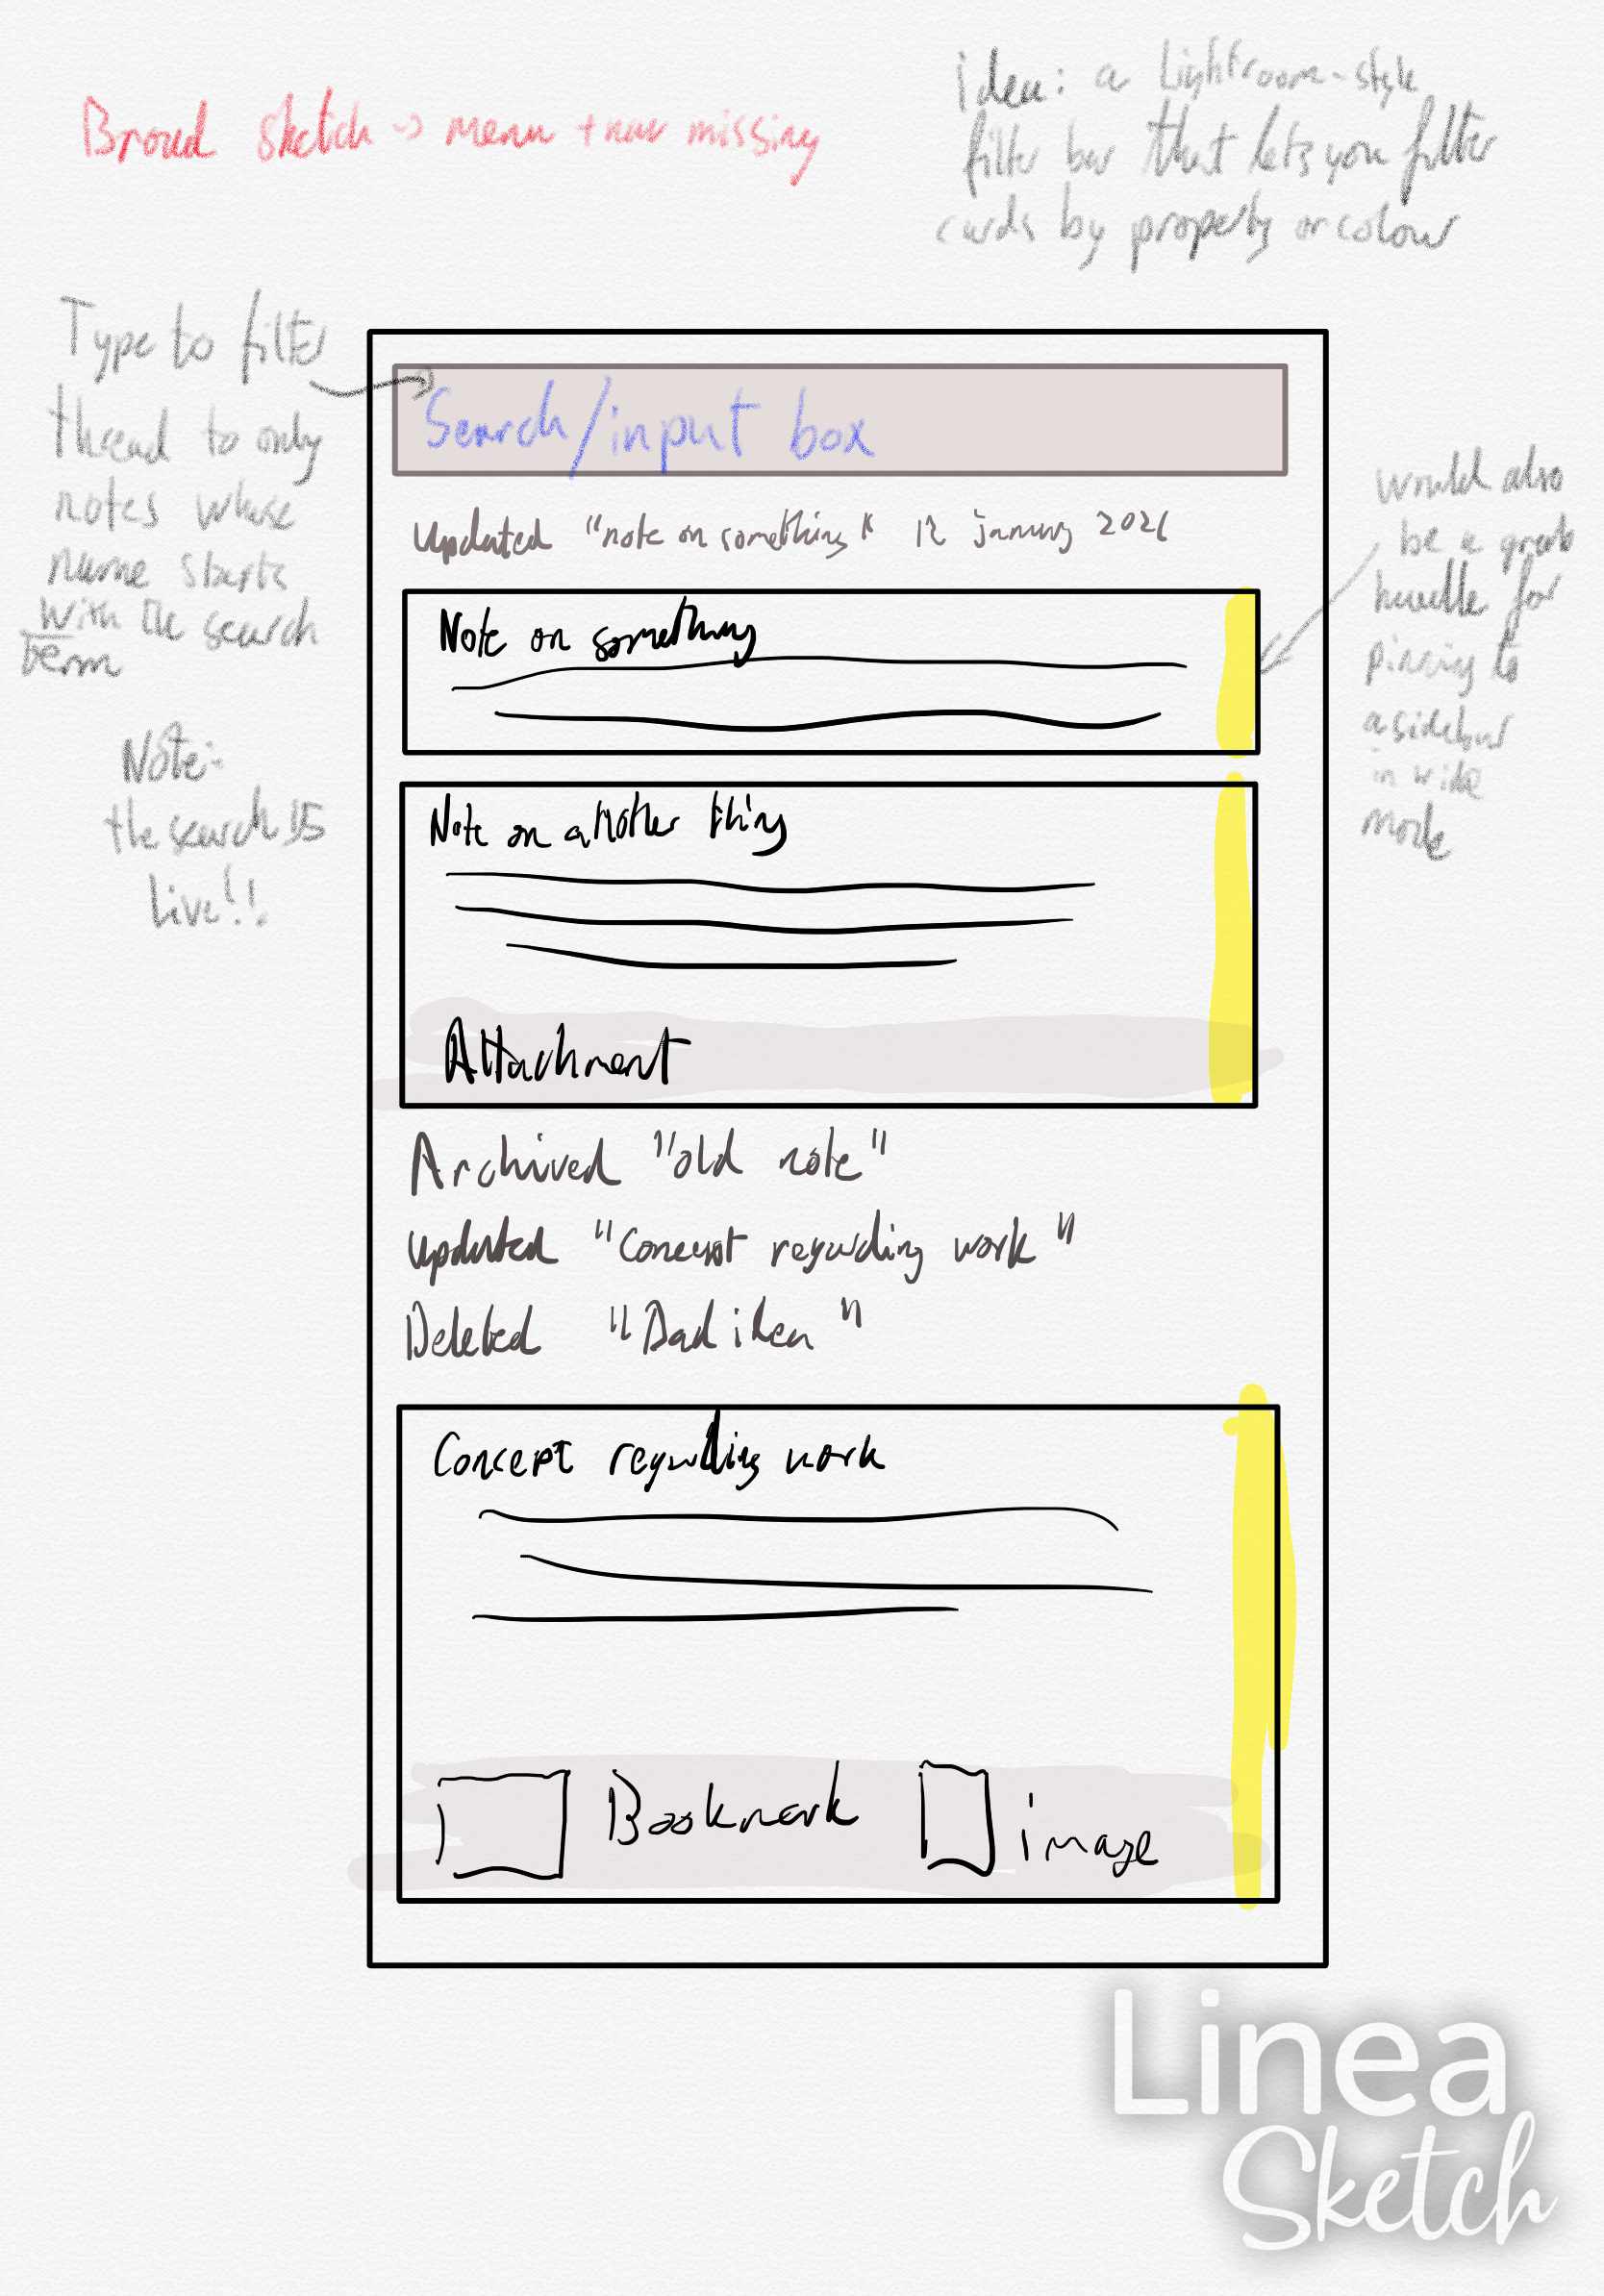 Broad sketch -> menu + nav missing
idea: a Lightroom-style
filter bar that lets you filter
cards by property or colour
Type to filter
thread to only
notes whose
name starts
with the search
term
Note:
the search is
Live!!
Search/input box
Updated "note on something" 12 January 2021
Note on something
would also
be a great
handle for
pinning to
a sidebar
in wide
mode
Note on another thing
Attachment
Archived "old note"
Updated "Concept regarding work"
Deleted "Dad idea"
Concept regarding work
Bookmark
image
Linea
Sketch